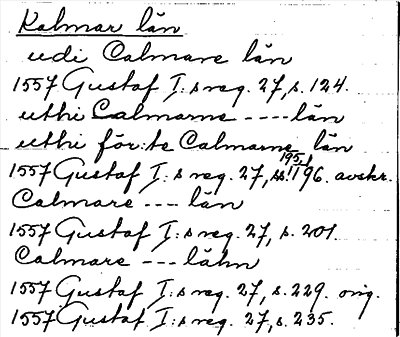 Kalmar län
udi Calmare län
1557 Gustaf I:s reg. 27, s. 124.
uthi Calmarne ---- län
uthi för:te Calmarne län
1557 Gustaf I:s reg. 27, ss. 195, 196. avskr.
Calmare --- län
1557 Gustaf I:s reg. 27, s. 201.
Calmare --- lähn
1557 Gustaf I:s reg. 27, s. 229. orig.
1557 Gustaf I:s reg. 27, s. 235.